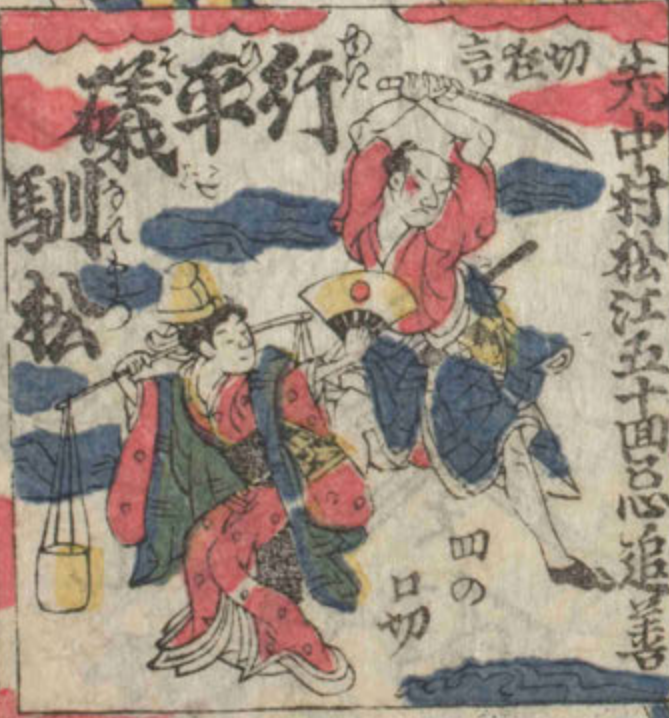 先中村松江五十回忌追善
切狂言
行平
磯
馴松
四の
口切